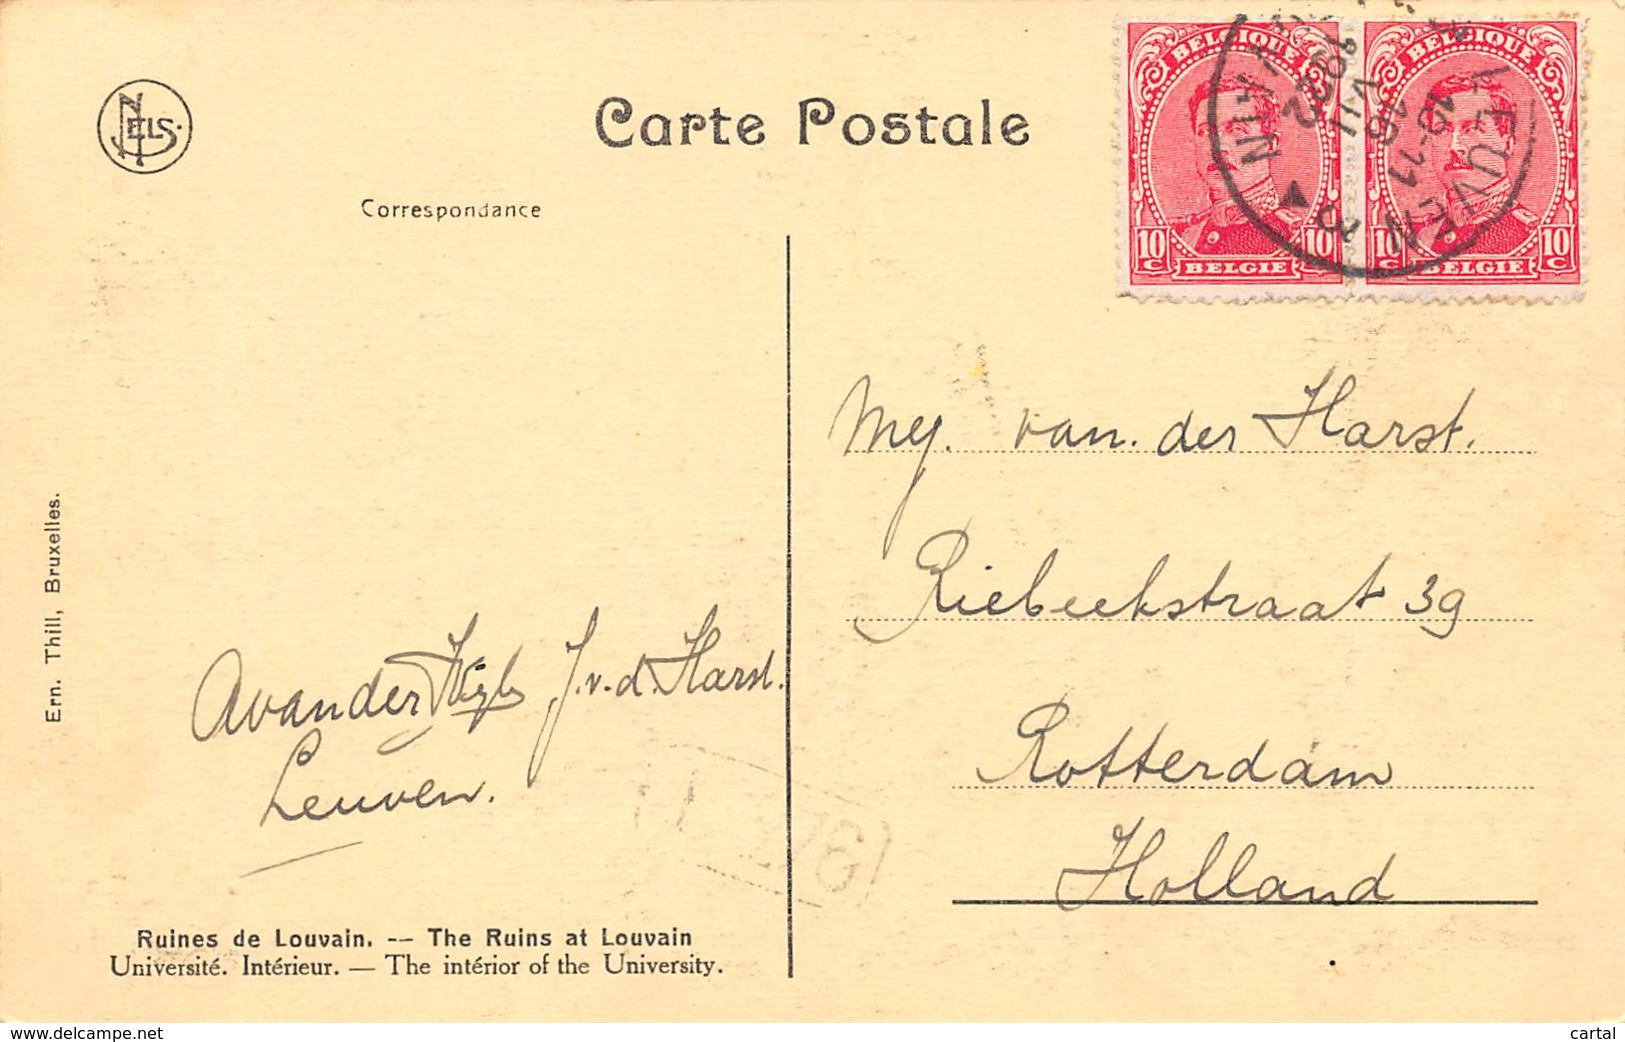 NELS.
Carte Postale
Correspondance
BELGIQUE
10 C
BELGIE
10
BELGIQUE
10 C
BELGIE
10 C
LEUVEN
10-11
16
VII
1922
Mej. van der Harst.
Riebeekstraat 39
Rotterdam
Holland
A van der J. v. d. Harst.
Leuven.
Ern. Thill, Bruxelles.
Ruines de Louvain. -- The Ruins at Louvain
Université. Intérieur. — The intérior of the University.
www.delcampe.net
cartal